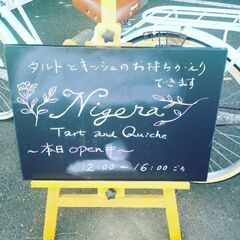 タルトとキッシュのお持ちかえり
できます
Nigera
Tart and Quiche
～本日open中～
12:00～16:00ごろ